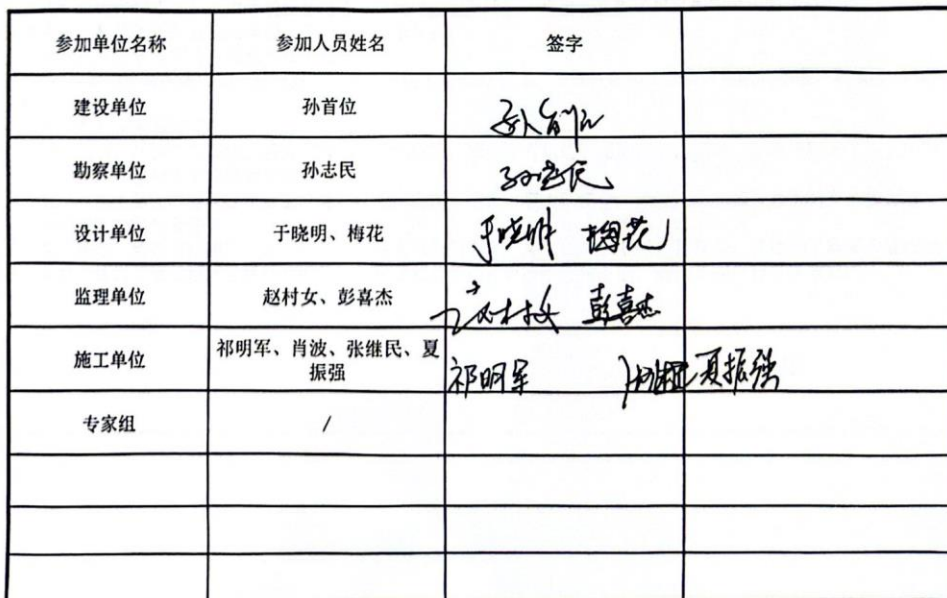 参加单位名称 参加人员姓名 签字
建设单位 孙首位
勘察单位 孙志民 孙志民
设计单位 于晓明、梅花 于晓明 梅花
监理单位 赵村女、彭喜杰 彭喜杰
施工单位 祁明军、肖波、张继民、夏
振强 祁明军 夏振强
专家组 /